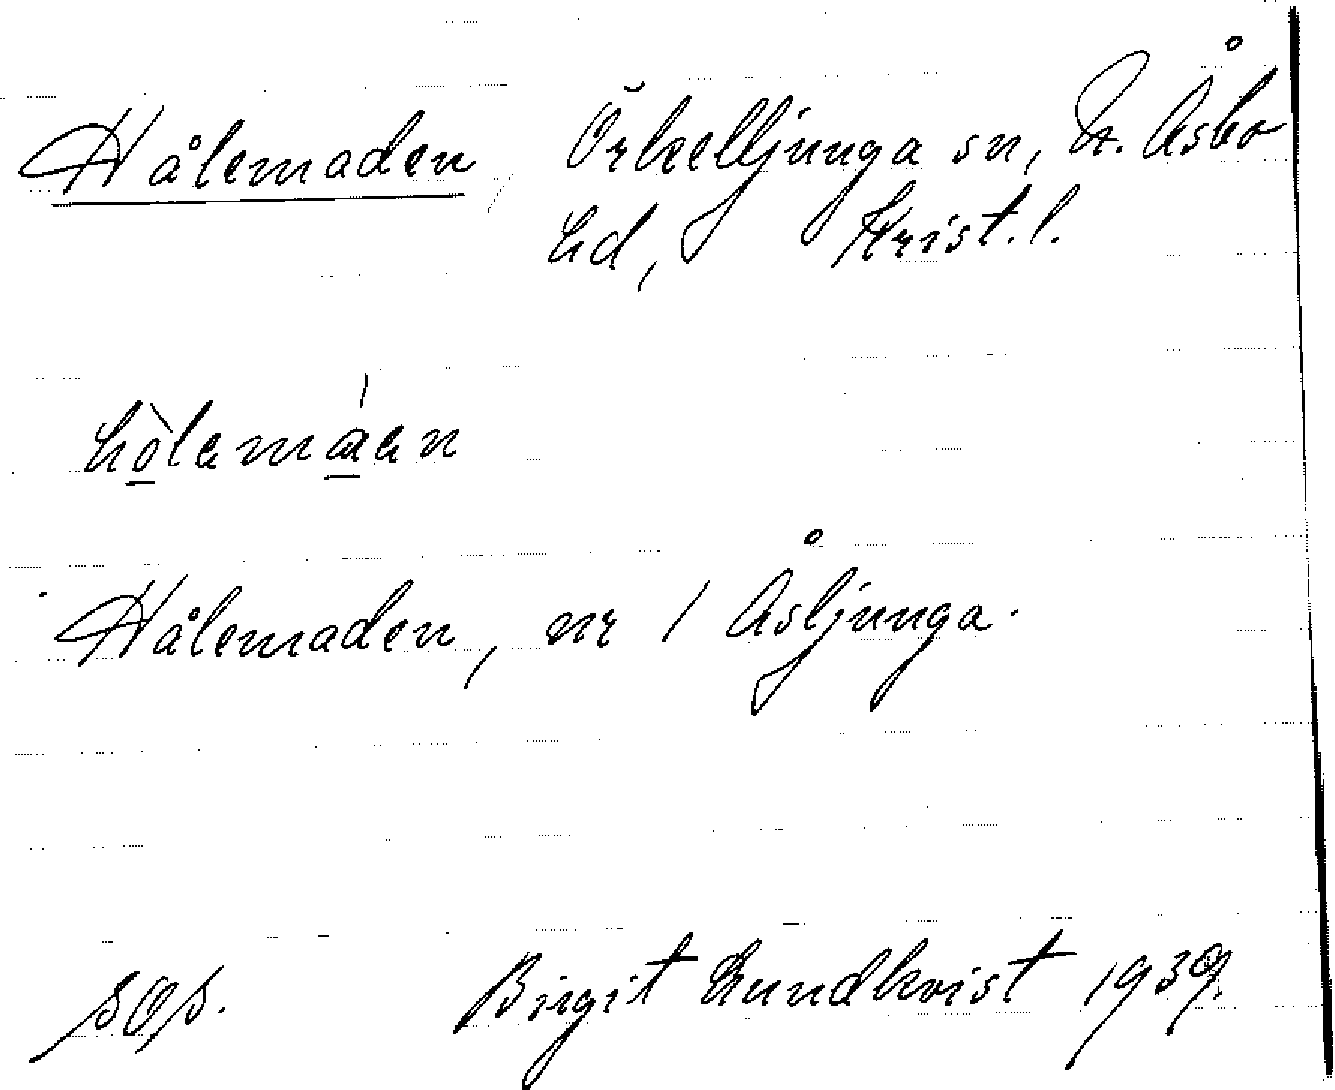 Hålemaden, Örkelljunga sn, N. Åsbo
hd, Krist. l.
hòlamáan
Hålemaden, nr 1 Åsljunga.
Birgit Lundkvist 1939.